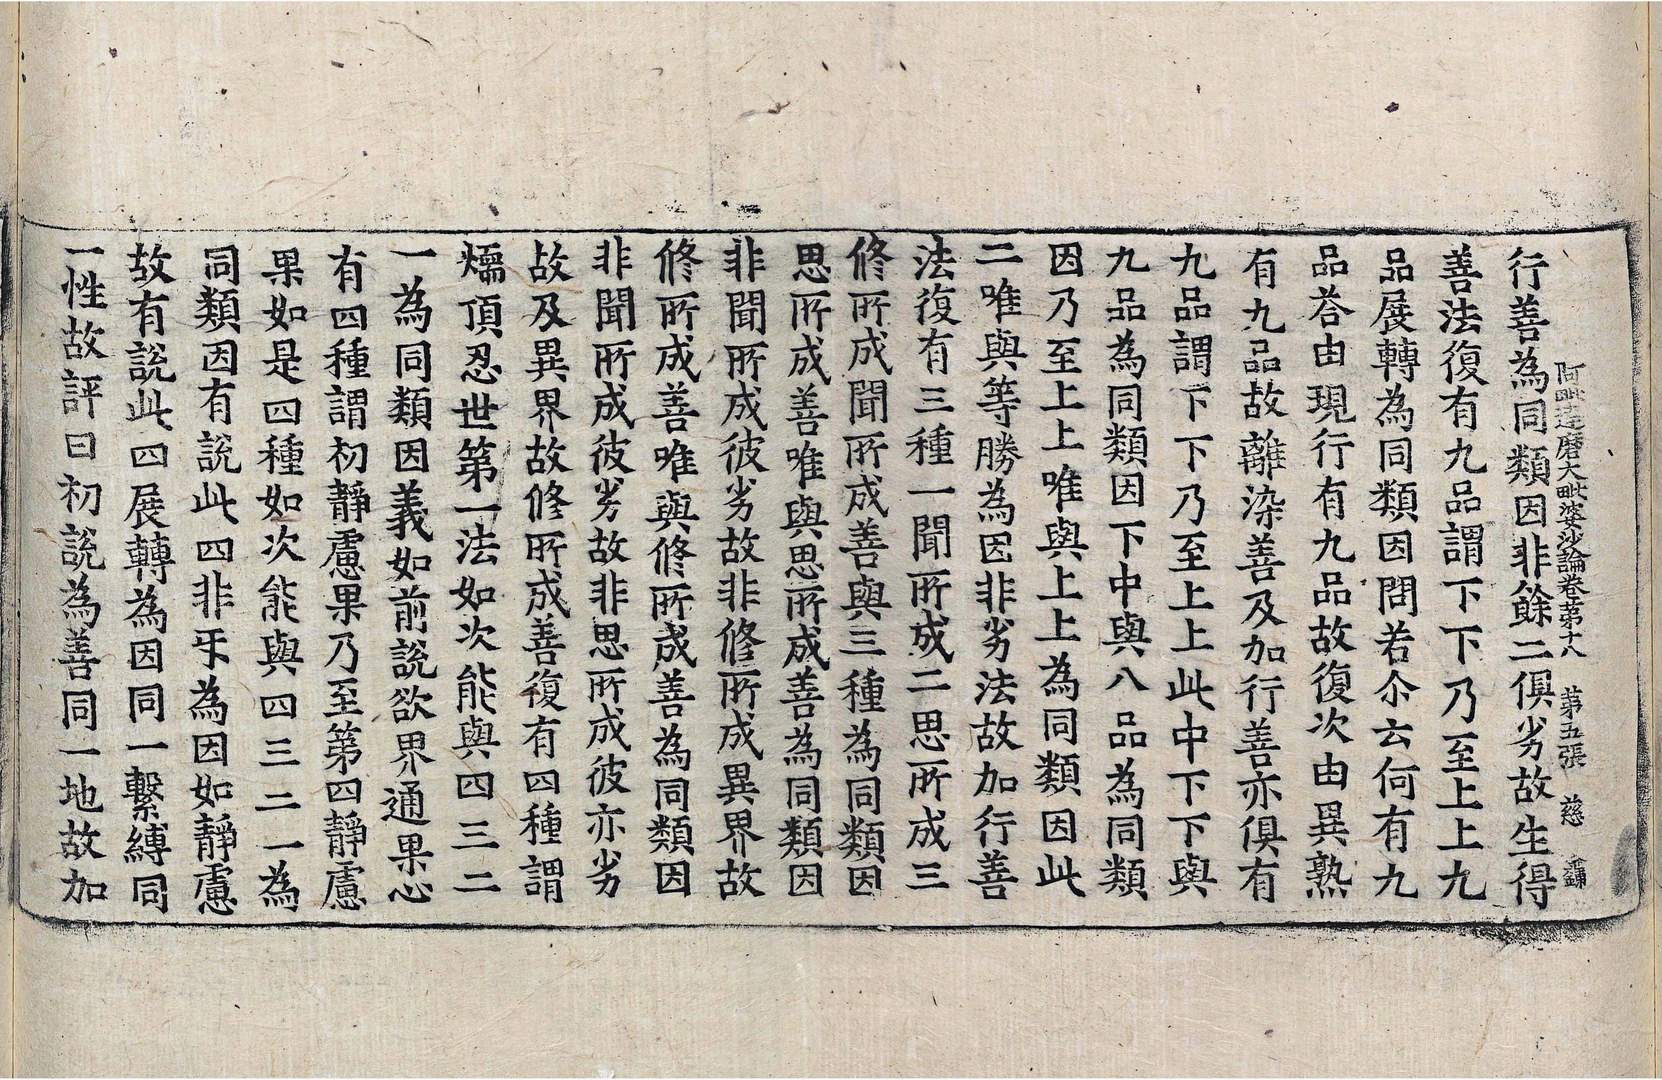 阿毗達磨大毗婆沙論卷苐十八　苐五張　慈
行善為同類因非餘二俱劣故生得
善法復有九品謂下下乃至上上九
品展轉為同類因問若尒云何有九
品荅由現行有九品故復次由異熟
有九品故離染善及加行善亦俱有
九品謂下下乃至上上此中下下與
九品為同類因下中與八品為同類
因乃至上上唯與上上為同類因此
二唯與等勝為因非劣法故加行善
法復有三種一聞所成二思所成三
修所成聞所成善與三種為同類因
思所成善唯與思所成善為同類因
非聞所成彼劣故非修所成異界故
修所成善唯與修所成善為同類因
非聞所成彼劣故非思所成彼亦劣
故及異界故修所成善復有四種謂
煗頂忍世第一法如次能與四三二
一為同類因義如前說欲界通果心
有四種謂初靜慮果乃至第四靜慮
果如是四種如次能與四三二一為
同類因有說此四非㸦為因如靜慮
故有說此四展轉為因同一繫縛同
一性故評曰初說為善同一地故加